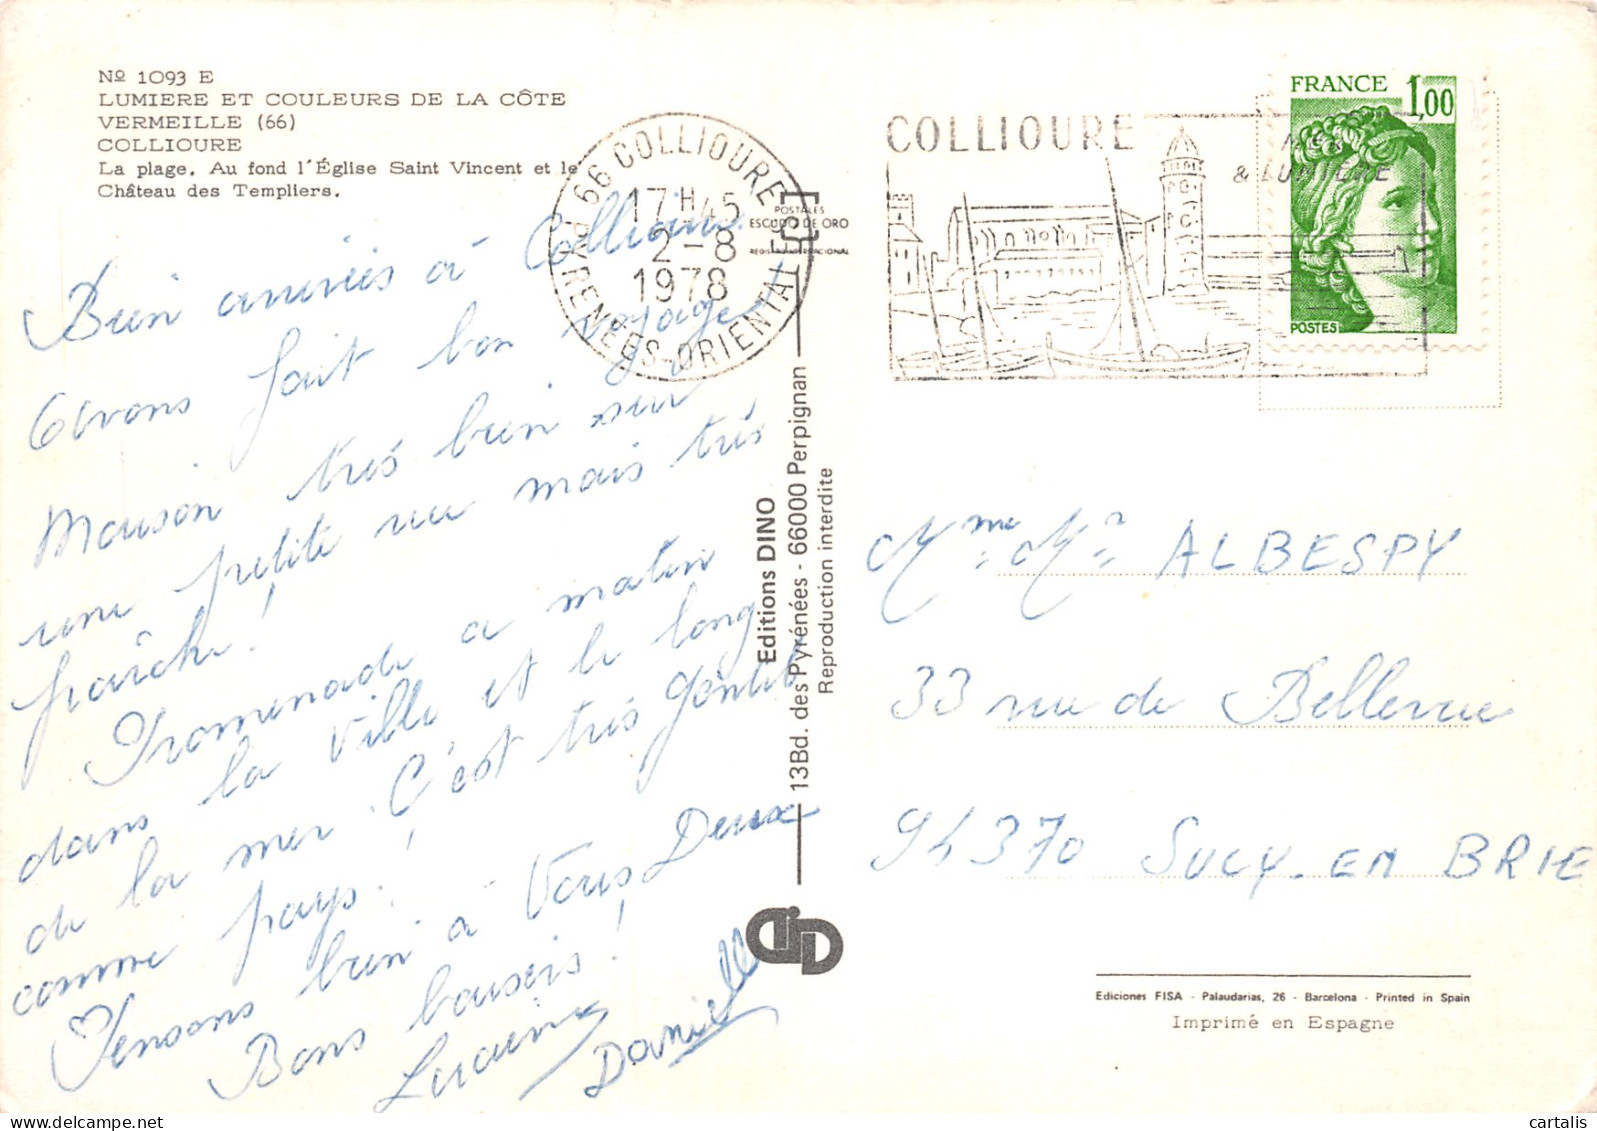 Nº 1093 E
LUMIERE ET COULEURS DE LA CÔTE
VERMEILLE (66)
COLLIOURE
La plage. Au fond l'Église Saint Vincent et le
Château des Templiers.
Bien arrivées à Collioure.
Avons fait bon voyage
Maison très bien sur
une petite rue mais très
fraîche !
Promenade ce matin
dans la ville et le long
de la mer. C'est très gentil
comme pays !
Pensons bien à Vous Deux
Bons baisers !
Lucienne
Danielle
66 COLLIOURE
17 H 45
2-8
1978
PYRENEES-ORIENTALES
POSTALES
ESCUDO DE ORO
Editions DINO
13Bd. des Pyrénées - 66000 Perpignan
Reproduction interdite
COLLIOURE
MER
& LUMIERE
FRANCE 1,00
POSTES
Mme Mr ALBESPY
33 rue de Bellevue
94370 SUCY-EN BRIE
Ediciones FISA - Palaudarias, 26 - Barcelona - Printed in Spain
Imprimé en Espagne
cartalis